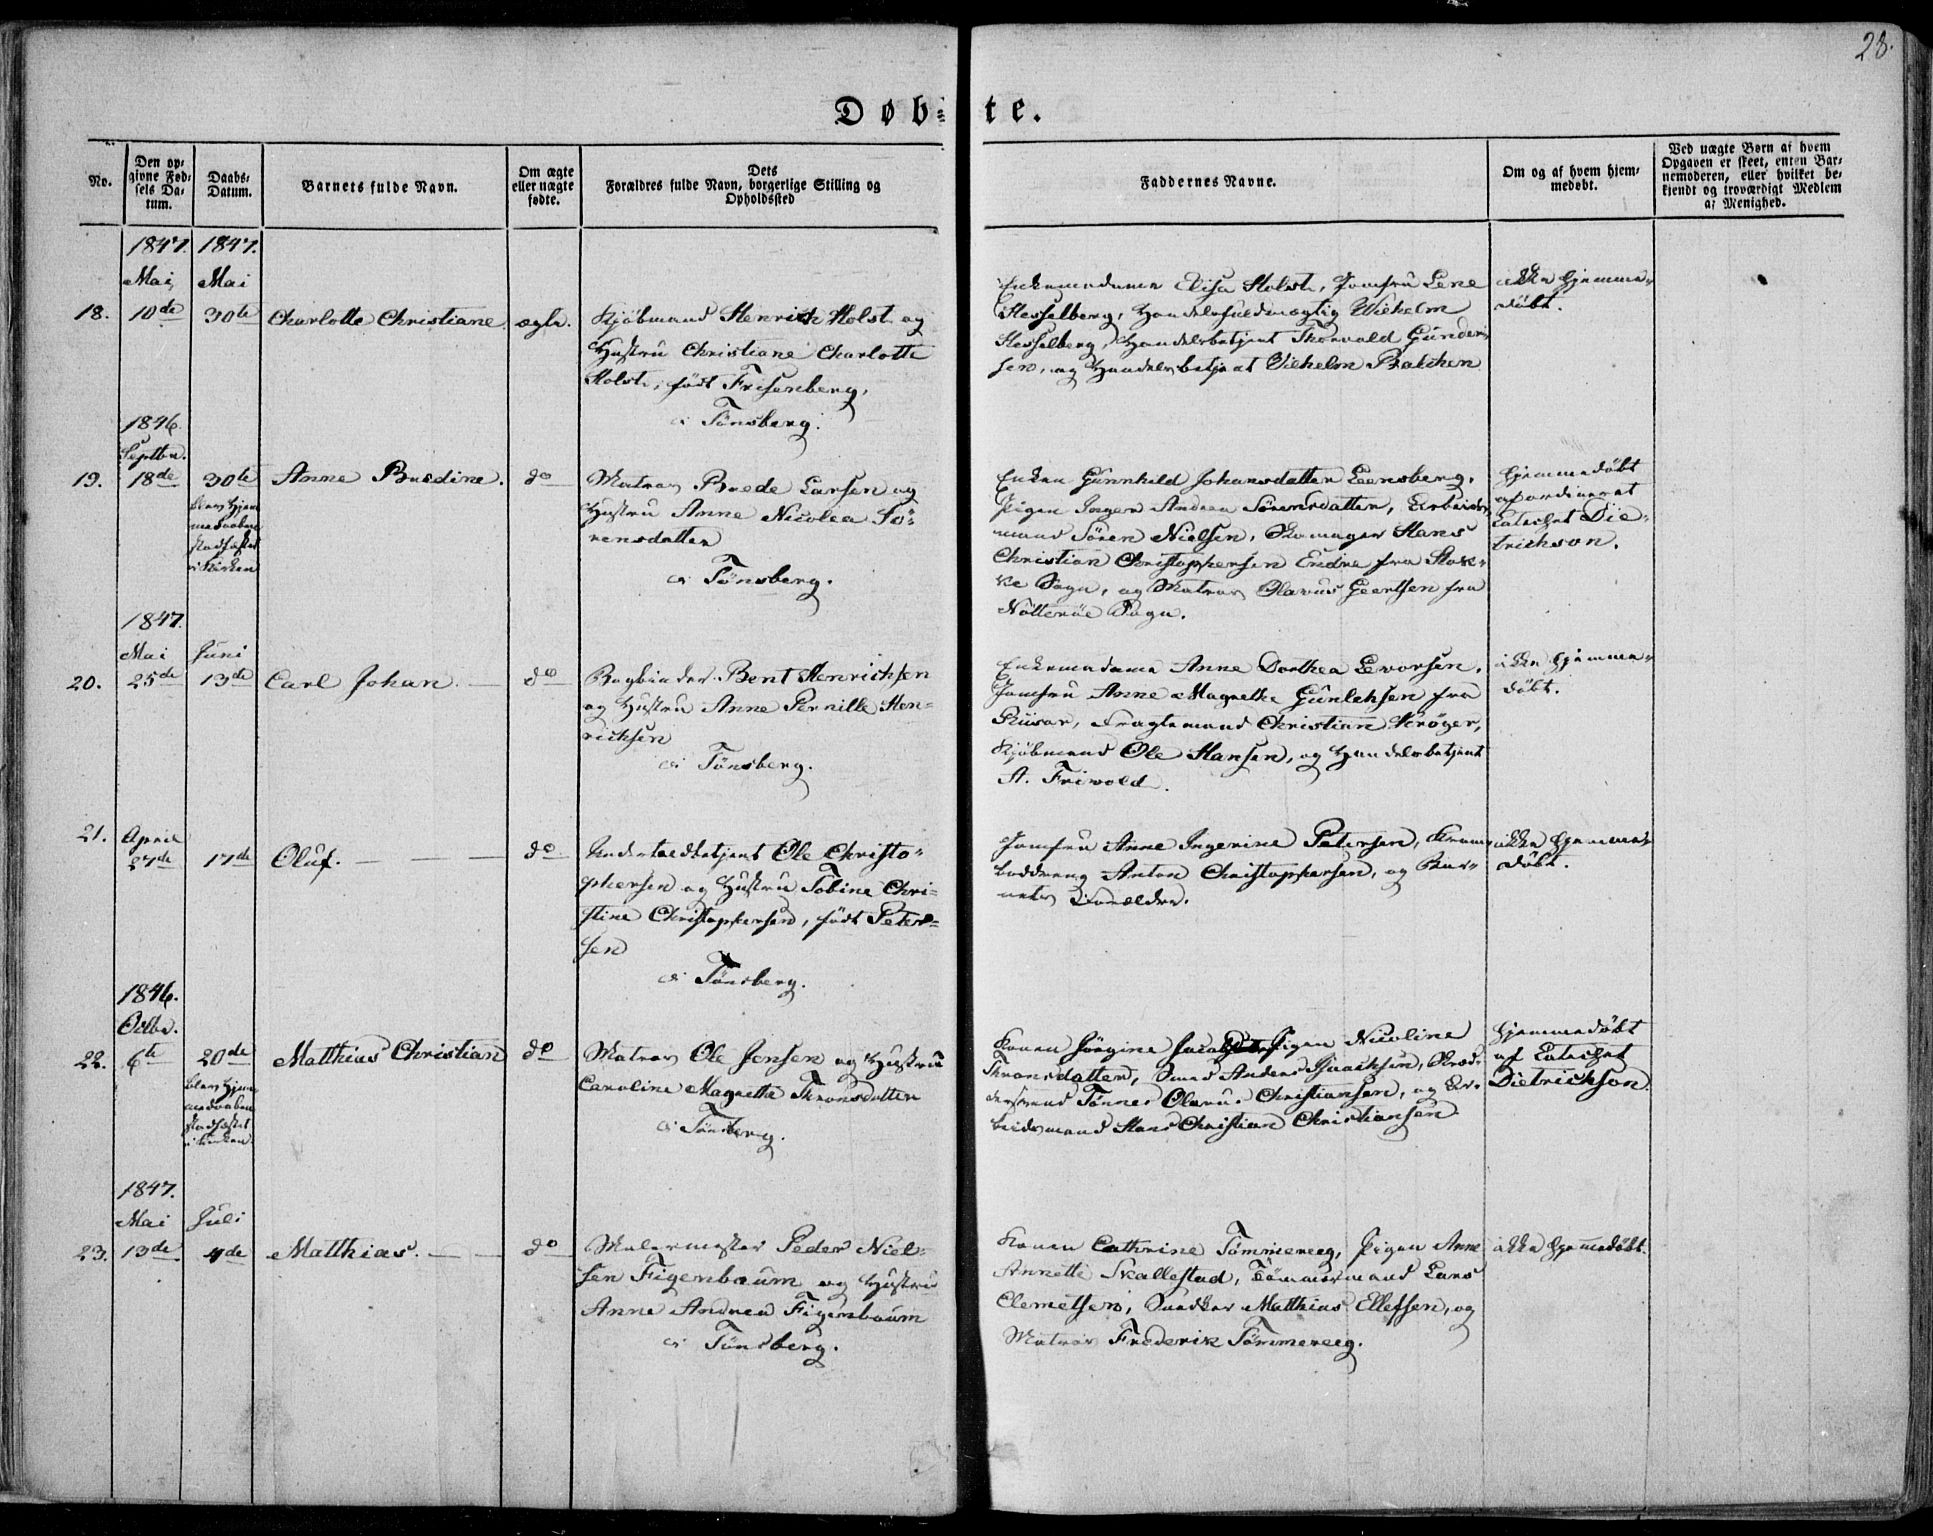 28.
Døb=
te.
No.
Den op=
givne Fød=
sels Da=
tum.
Daabs=
Datum.
Barnets fulde Navn.
Om ægte
eller uægte
fødte.
Dets
Forældres fulde Navn, borgerlige Stilling og
Opholdssted
Faddernes Navne.
Om og af hvem hjem=
medøbt.
Ved uægte Børn af hvem
Opgaven er skeet, enten Bar=
nemoderen, eller hvilket be=
kjendt og troværdigt Medlem
af Menighed.
1847. 1847.
Mai Mai
18. 10de 30te Charlotte Christiane ægte.
Kjøbmand Henrich Holst og
Hustru Christiane Charlotte
Holst, født Fresenberg,
i Tönsberg.
Enkemadame Elisa Holst, Jomfru Lene
Hesselberg, Handelsfuldmægtig Wilhelm
Hesselberg, Handelsbetjent Thorvald Gunder=
sen, og Handelsbetjent Vilhelm Balchen
ikke hjemme=
döbt.
1846.
Septbr.
19. 18de 30te Anne Bredine. do
blev hjem
medaaben
stadfæstet
i Kirken
Matros Brede Larsen og
Hustru Anne Nicolea Sö=
rensdatter
i Tönsberg.
Enken Gunnhild Johansdatter Leensberg,
Pigen Inger Andrea Sörensdatter, Arbeids=
mand Sören Nielsen, Skomager Hans
Christian Christophersen Endre fra Stok=
ke Sogn, og Matros Olavus Geertsen fra
Nötteröe Sogn.
Hjemmedöbt
af ordineret
Catechet Die=
trichson.
1847.
Mai Juni
20. 25de 13de Carl Johan. do
Bogbinder Bent Henrichsen
og Hustru Anne Pernille Hen=
richsen
i Tönsberg.
Enkemadame Anne Dorthea Evorsen,
Jomfru Anne Magrethe Gunlehsen fra
Riisör, Fragtemand Christian Kröger,
Kjöbmand Ole Hansen, og Handelsbetjent
A. Friwold.
ikke hjemme=
döbt.
21. April
27de 17de Oluf. do
Undertoldbetjent Ole Christo=
phersen og Hustru Tobine Chri=
stine Christophersen, födt Peter=
sen
i Tönsberg.
Jomfru Anne Ingerine Petersen, Kram=
boddreng Anton Christophersen, og Bar=
nets Forældre.
ikke hjemme=
döbt.
1846.
Octbr.
22. 6te 20de Matthias Christian do
blev hjem
medaaben
stadfæstet
i Kirken
Matros Ole Jensen og Hustru
Caroline Magrethe Thronsdatter
i Tönsberg.
Konen Jörgine Pigen Nicoline
Thronsdatter, Smed Anders Isaachsen,
Tönnes Olavus Christiansen, og Ar=
beidsmand Hans Christian Christiansen.
Hjemmedöbt
af Catechet
Dietrichson.
1847.
Mai Juli
23. 13de 4de Matthias. do
Malermester Peder Niel=
sen Figenbaum og Hustru
Anne Andrea Figenbaum
i Tönsberg.
Konen Cathrine Tömmereeg, Pigen Anne
Annette Skallestad, Tömmermand Lars
Clemetsen, Snedker Matthias Ellefsen, og
Matros Frederik Tömmereeg.
ikke hjemmedöbt.